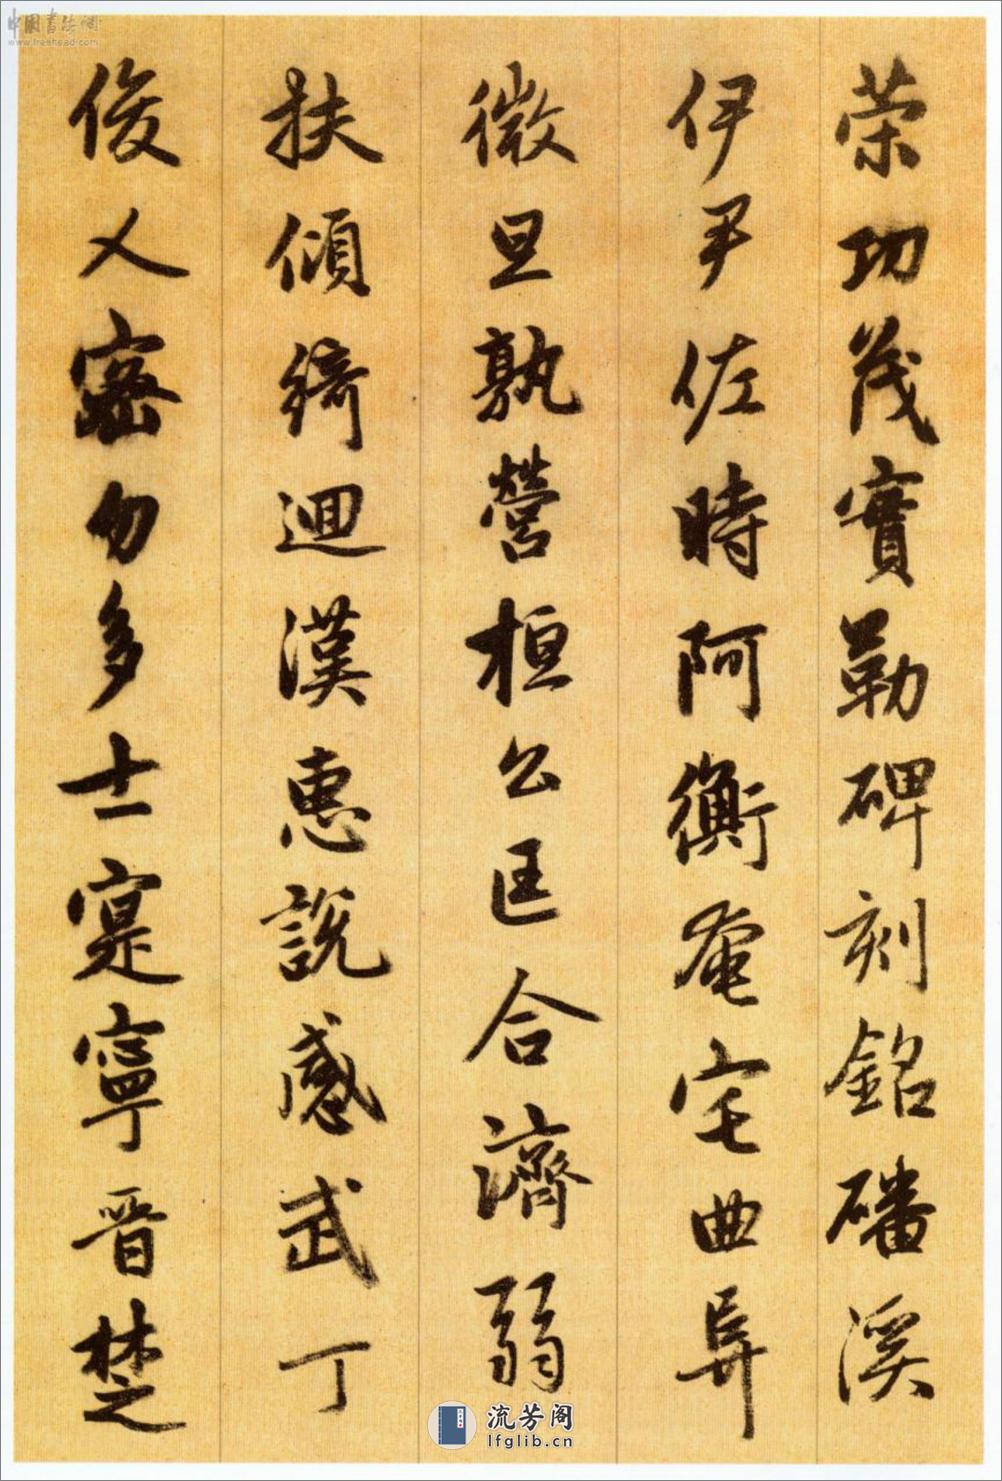 荣功茂實勒碑刻銘磻溪
伊尹佐時阿衡奄宅曲阜
微旦孰營桓公匡合濟弱
扶傾綺迴漢惠說感武丁
俊乂密勿多士寔寧晉楚
中国书法网
www.freehead.com
流芳阁
lfglib.cn